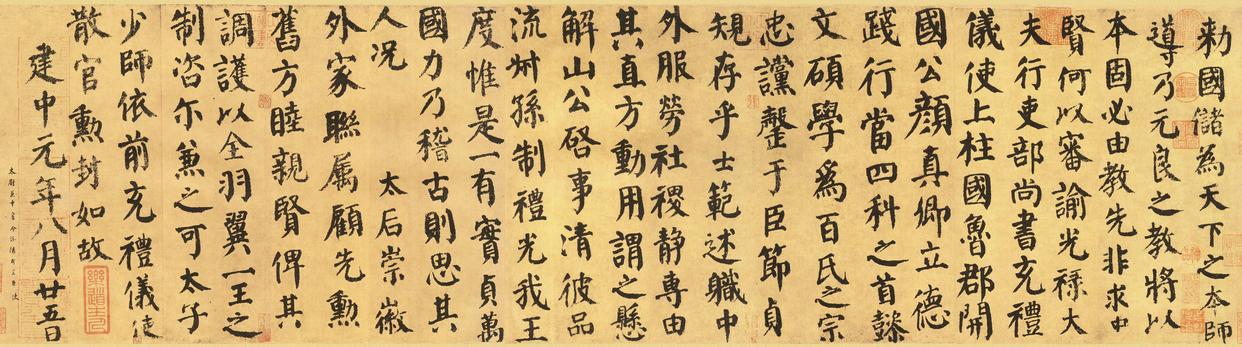 勑國儲為天下之本師
導乃元良之教將以
本固必由教先非求中
賢何以審諭光祿大
夫行吏部尚書充禮
儀使上柱國魯郡開
國公顏真卿立德
踐行當四科之首懿
文碩學爲百氏之宗
忠讜罄于臣節貞
規存乎士範述職中
外服勞社稷静專由
其直方動用謂之懸
解山公啓事清彼品
流叔孫制禮光我王
度惟是一有實貞萬
國力乃稽古則思其
人况 太后崇徽
外家聯屬顧先勳
舊方睦親賢俾其
調護以全羽翼一王之
制咨尔兼之可太子
少師依前充禮儀使
散官勲封如故
建中元年八月廿五日